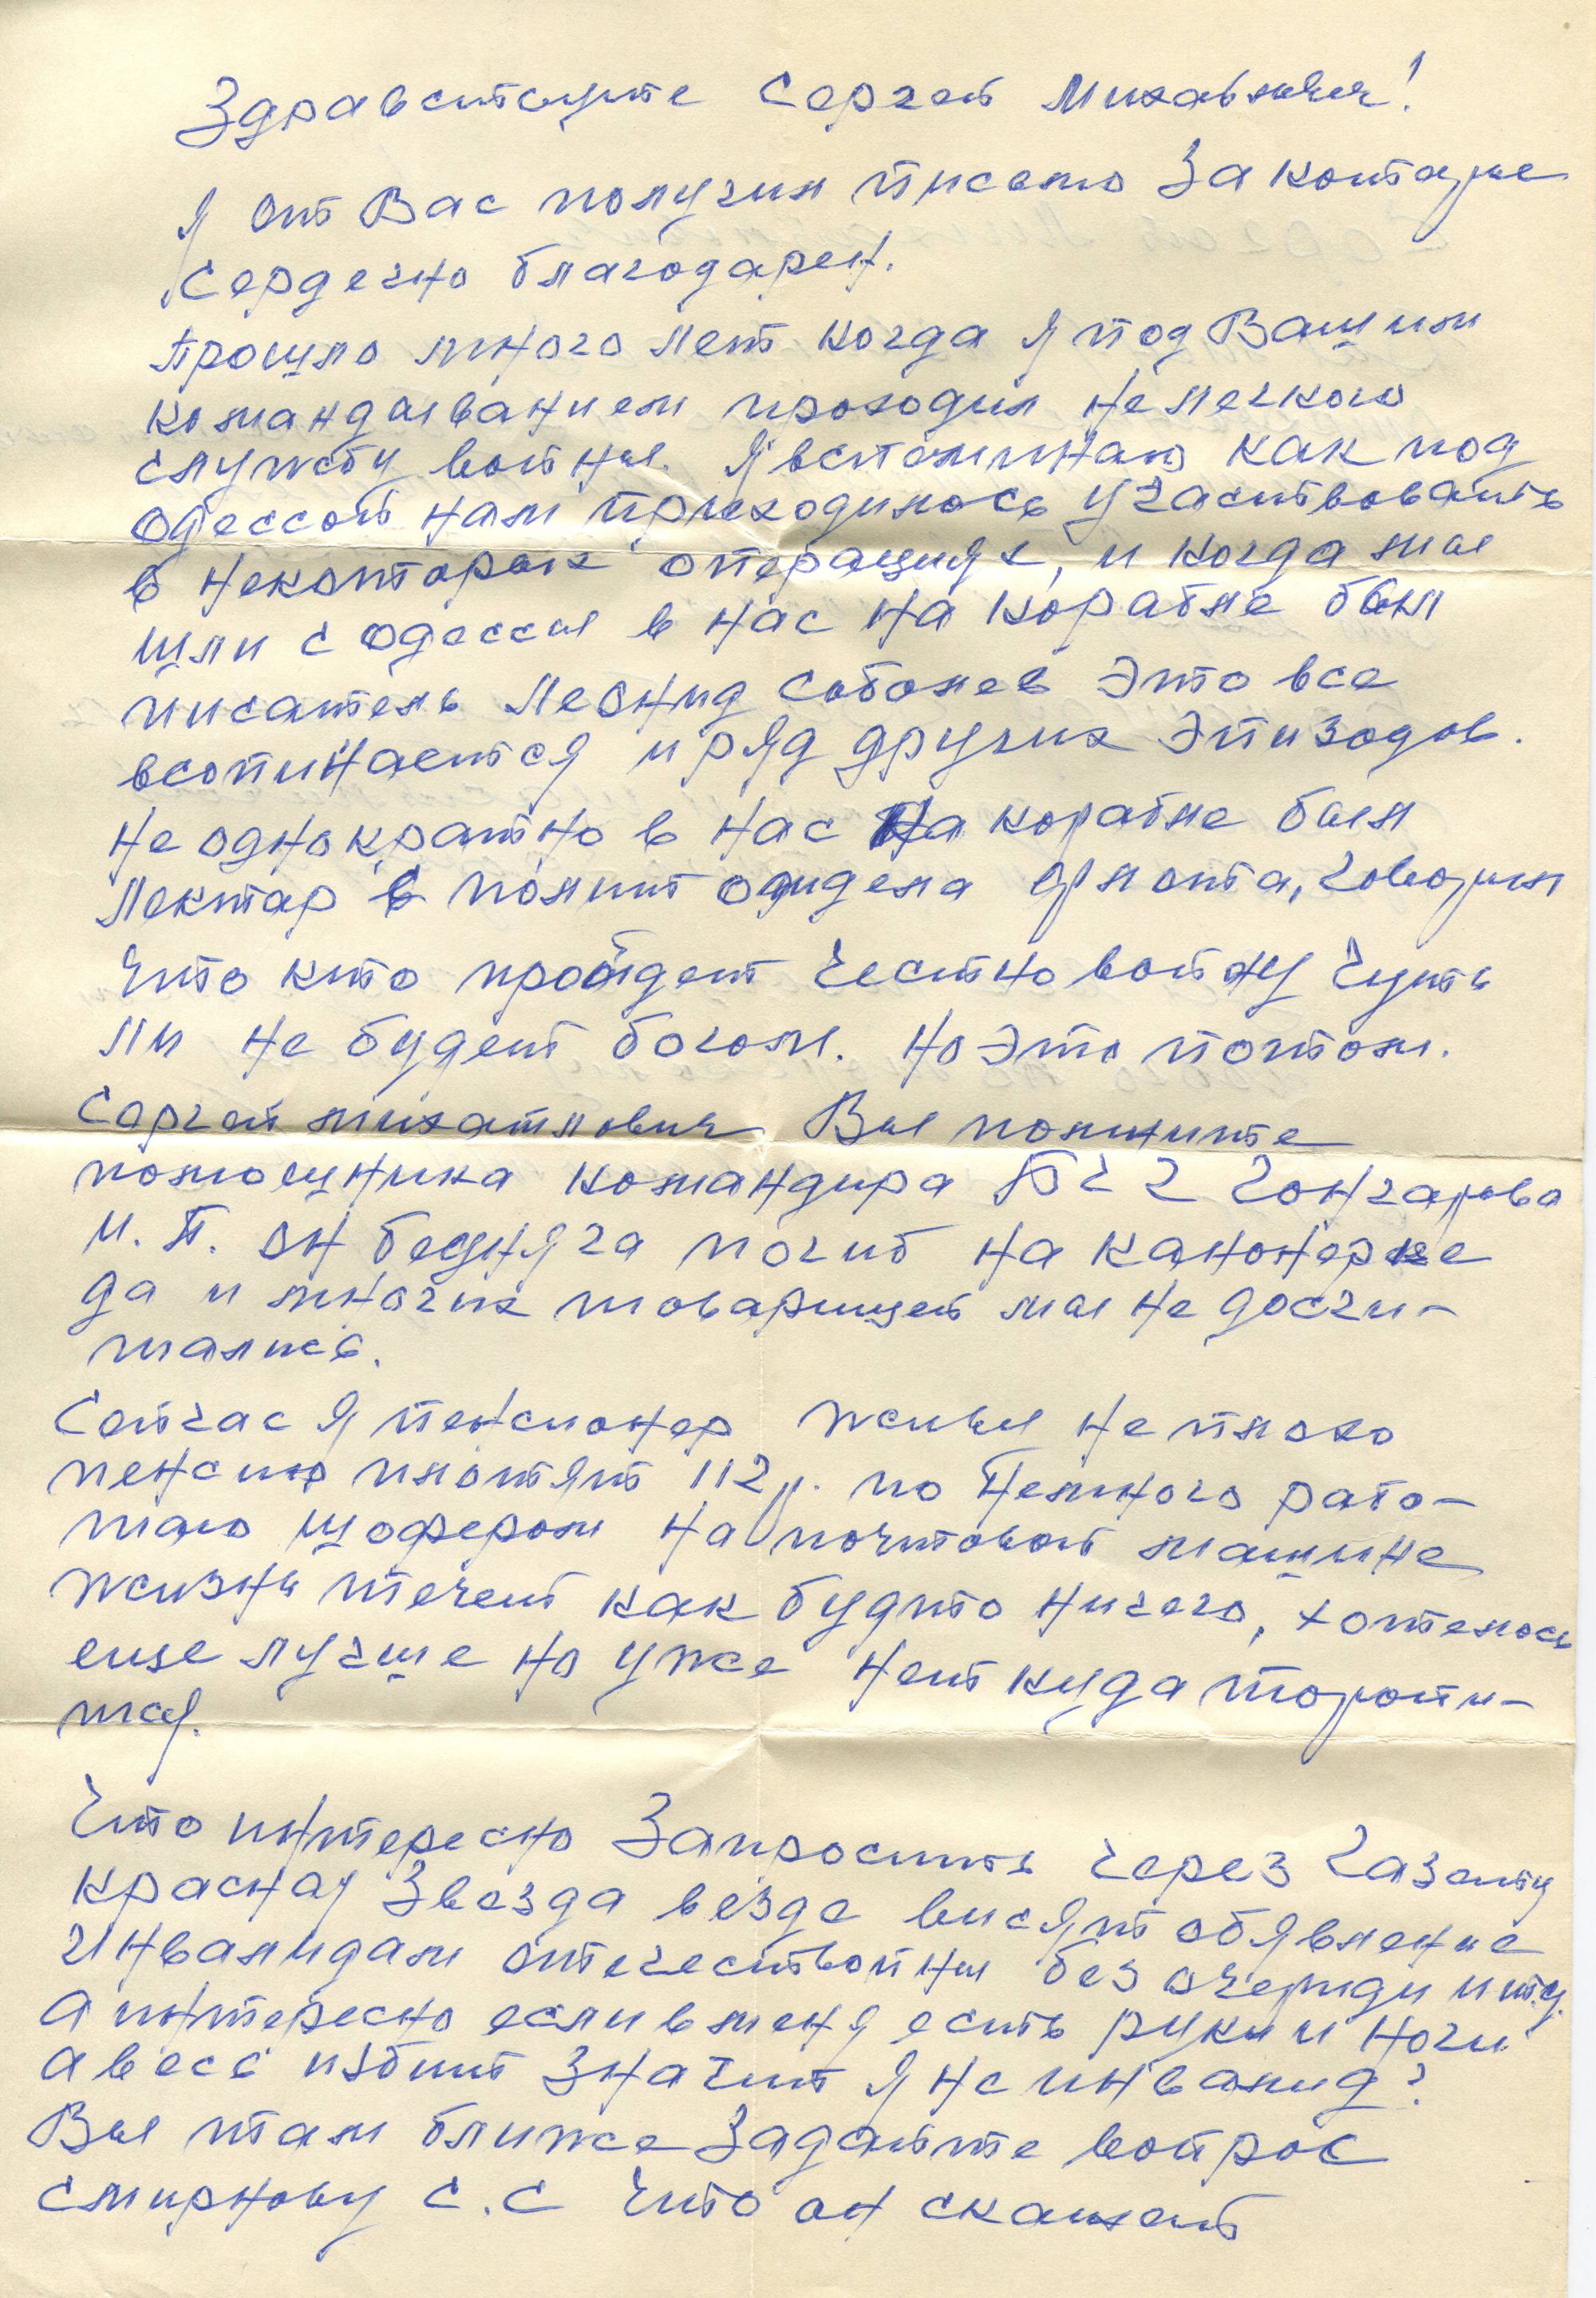 Здравствуйте Сергей Михайлович!
Я от Вас получил письмо За которые
Сердечно благодарен.
Прошло много лет когда я под Вашим
командыванием проходил не легкою
службу войны. Я вспоминаю как под
Одессой нам приходилось участвовать
в некоторых операциях, и когда мы
шли с Одессы в нас на корабле был
писатель Леонид Соболев Это все
вспоинается и ряд других Эпизодов.
Не однократно в нас на корабле был
Лектар с полит отдела флота, говорил
Что кто пройдет Честно войну Чуть
ли не будет богом. Но Это потом.
Сергей михайлович Вы помните
помошника командира БЧ 2 Гончарова
И. П. Он бедняга погиб на канонерке
да и многих товарищей мы не досчи-
тались.
Сейчас я пенсионер живы не плохо
пенсию платят 112 р. по Немного рабо-
таю шофером на почтовой машине
жизнь течет как будто ничего, хотелось
еще лучше но уже нет куда торопи-
тся.
Что интересно Запросить Через Газету
Красная Звезда везде висят обявление
Инвалидам отечест войны без очереди и т.д.
А интересно если в меня есть руки и ноги
а весь избит Значит я не инвалид?
Вы там ближе Задайте вопрос
Смирнову С.С Что он скажет